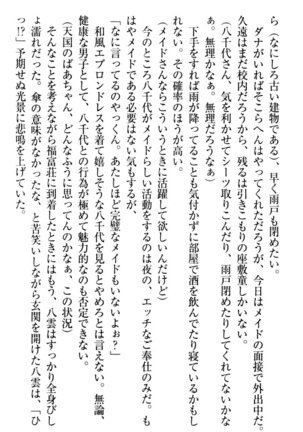 ら（なにしろ古い建物である）、早く雨戸も閉めたい。
ダナがいればそこらへんはやってくれただろうが、今日はメイドの面接で外出中だ。
久遠はまだ校内だろうから、残るは引きこもりの座敷童しかいない。
（八千代さん、気を利かせてシーツ取りこんだり、雨戸閉めたりしてくれてないかな
ぁ。無理かなぁ。無理だろうなぁ）
下手をすれば雨が降ってることも気付かずに部屋で酒を飲んでたり寝ているかもし
れない。その確率のほうが高い。
（メイドさんならこういうときに活躍して欲しいんだけど）
今のところ八千代がメイドらしい活動をするのは夜の、エッチなご奉仕のみだ。も
はやメイドである必要はない気もするが、
「なに言ってるのやっくん。あたしほど完璧なメイドもいないよぉ？」
和風エプロンドレスを着て嬉しそうな八千代を見るとやめろとは言えない。無論、
健康な男子として、八千代との行為が極めて魅力的なのも否定できない。
（天国のばあちゃん、どんなふうに思ってんのかなぁ、この状況）
そんなことを考えながら福富荘に到着したときにはもう、八雲はすっかり全身びし
ょ濡れだった。傘の意味がなかったな、と苦笑いしながら玄関を開けた八雲は、「ひ
っ!?」予期せぬ光景に悲鳴を上げていた。